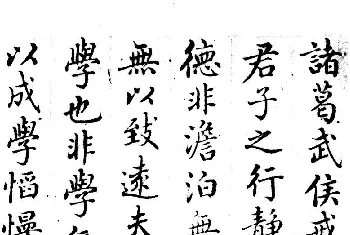 諸葛武侯戒
君子之行静
德非澹泊無
無以致遠夫
學也非學
以成學慆慢